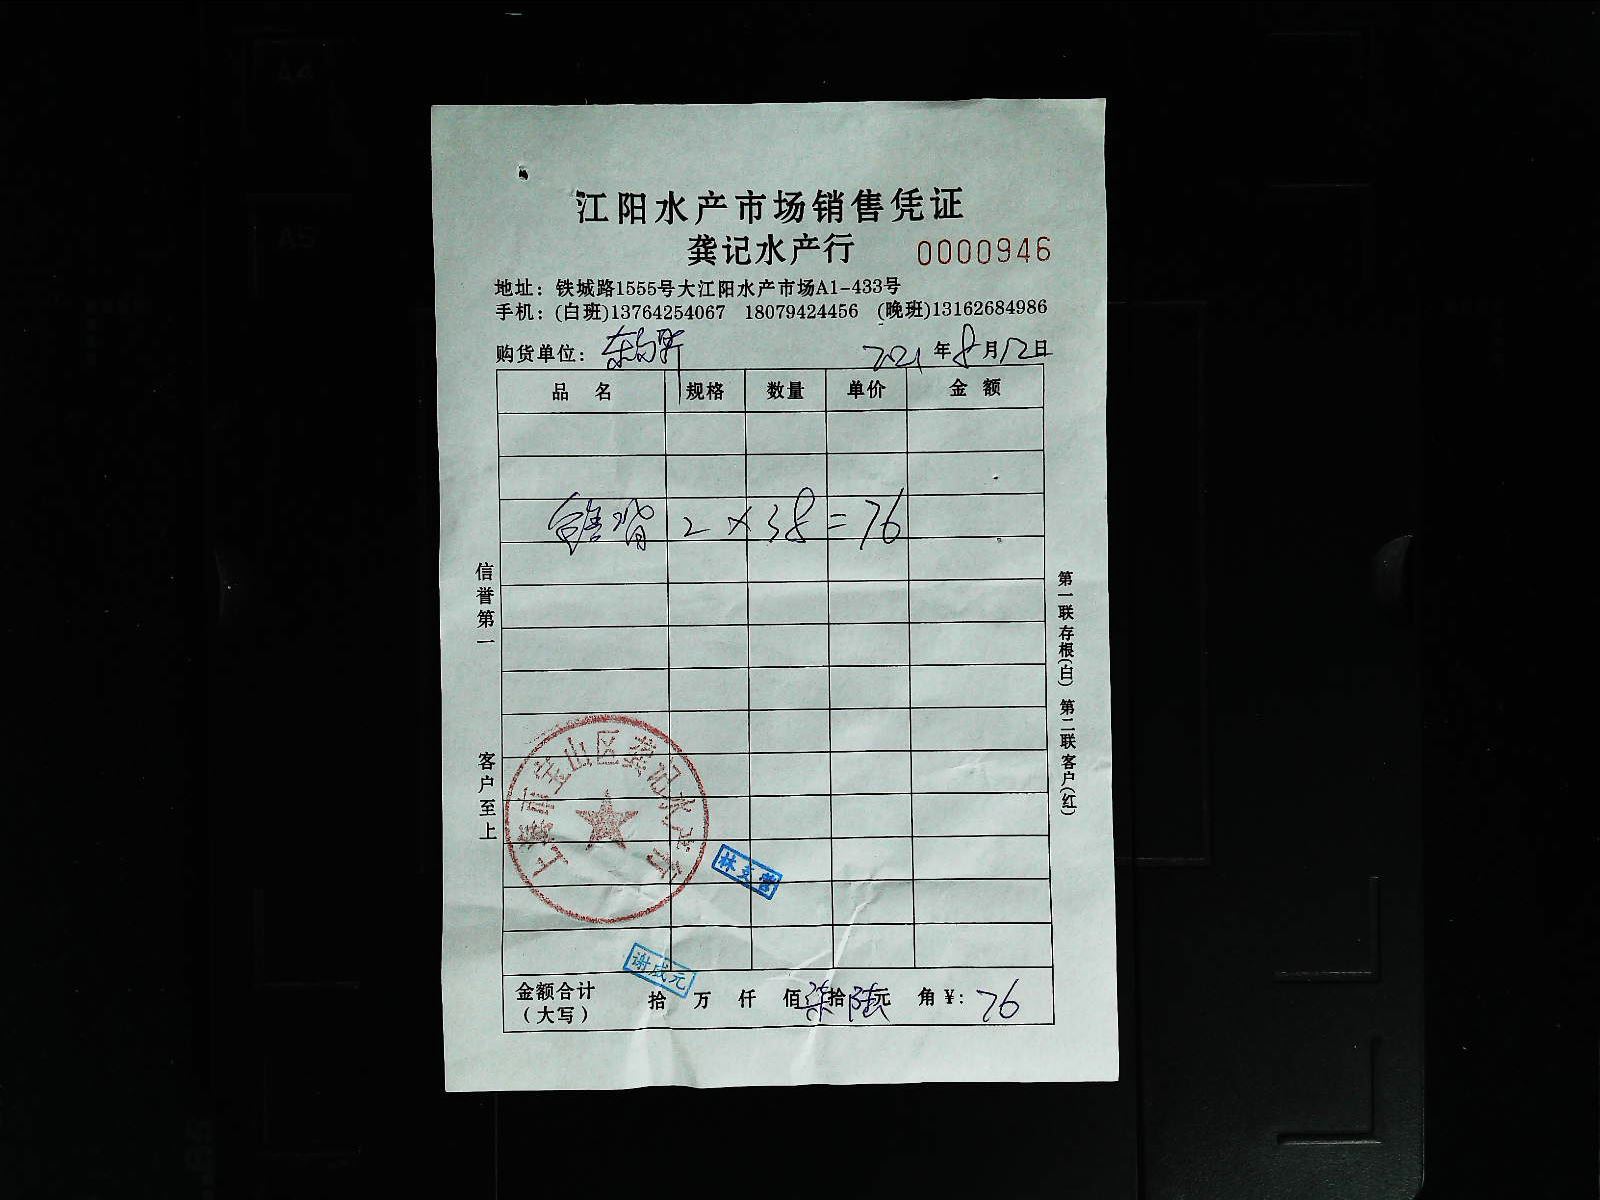 江阳水产市场销售凭证
龚记水产行 0000946
地址：铁城路1555号大江阳水产市场A1-433号
手机：(白班)13764254067 18079424456 (晚班)13162684986
购货单位： 2021年8月12日
品名 规格 数量 单价 金额
2×38=76
信誉第一 客户至上
第一联存根(白) 第二联客户(红)
上海市宝山区龚记水产行
林支营
谢成元
金额合计（大写） 拾 万 仟 佰 柒拾陆元 角 ¥: 76
A4
A5